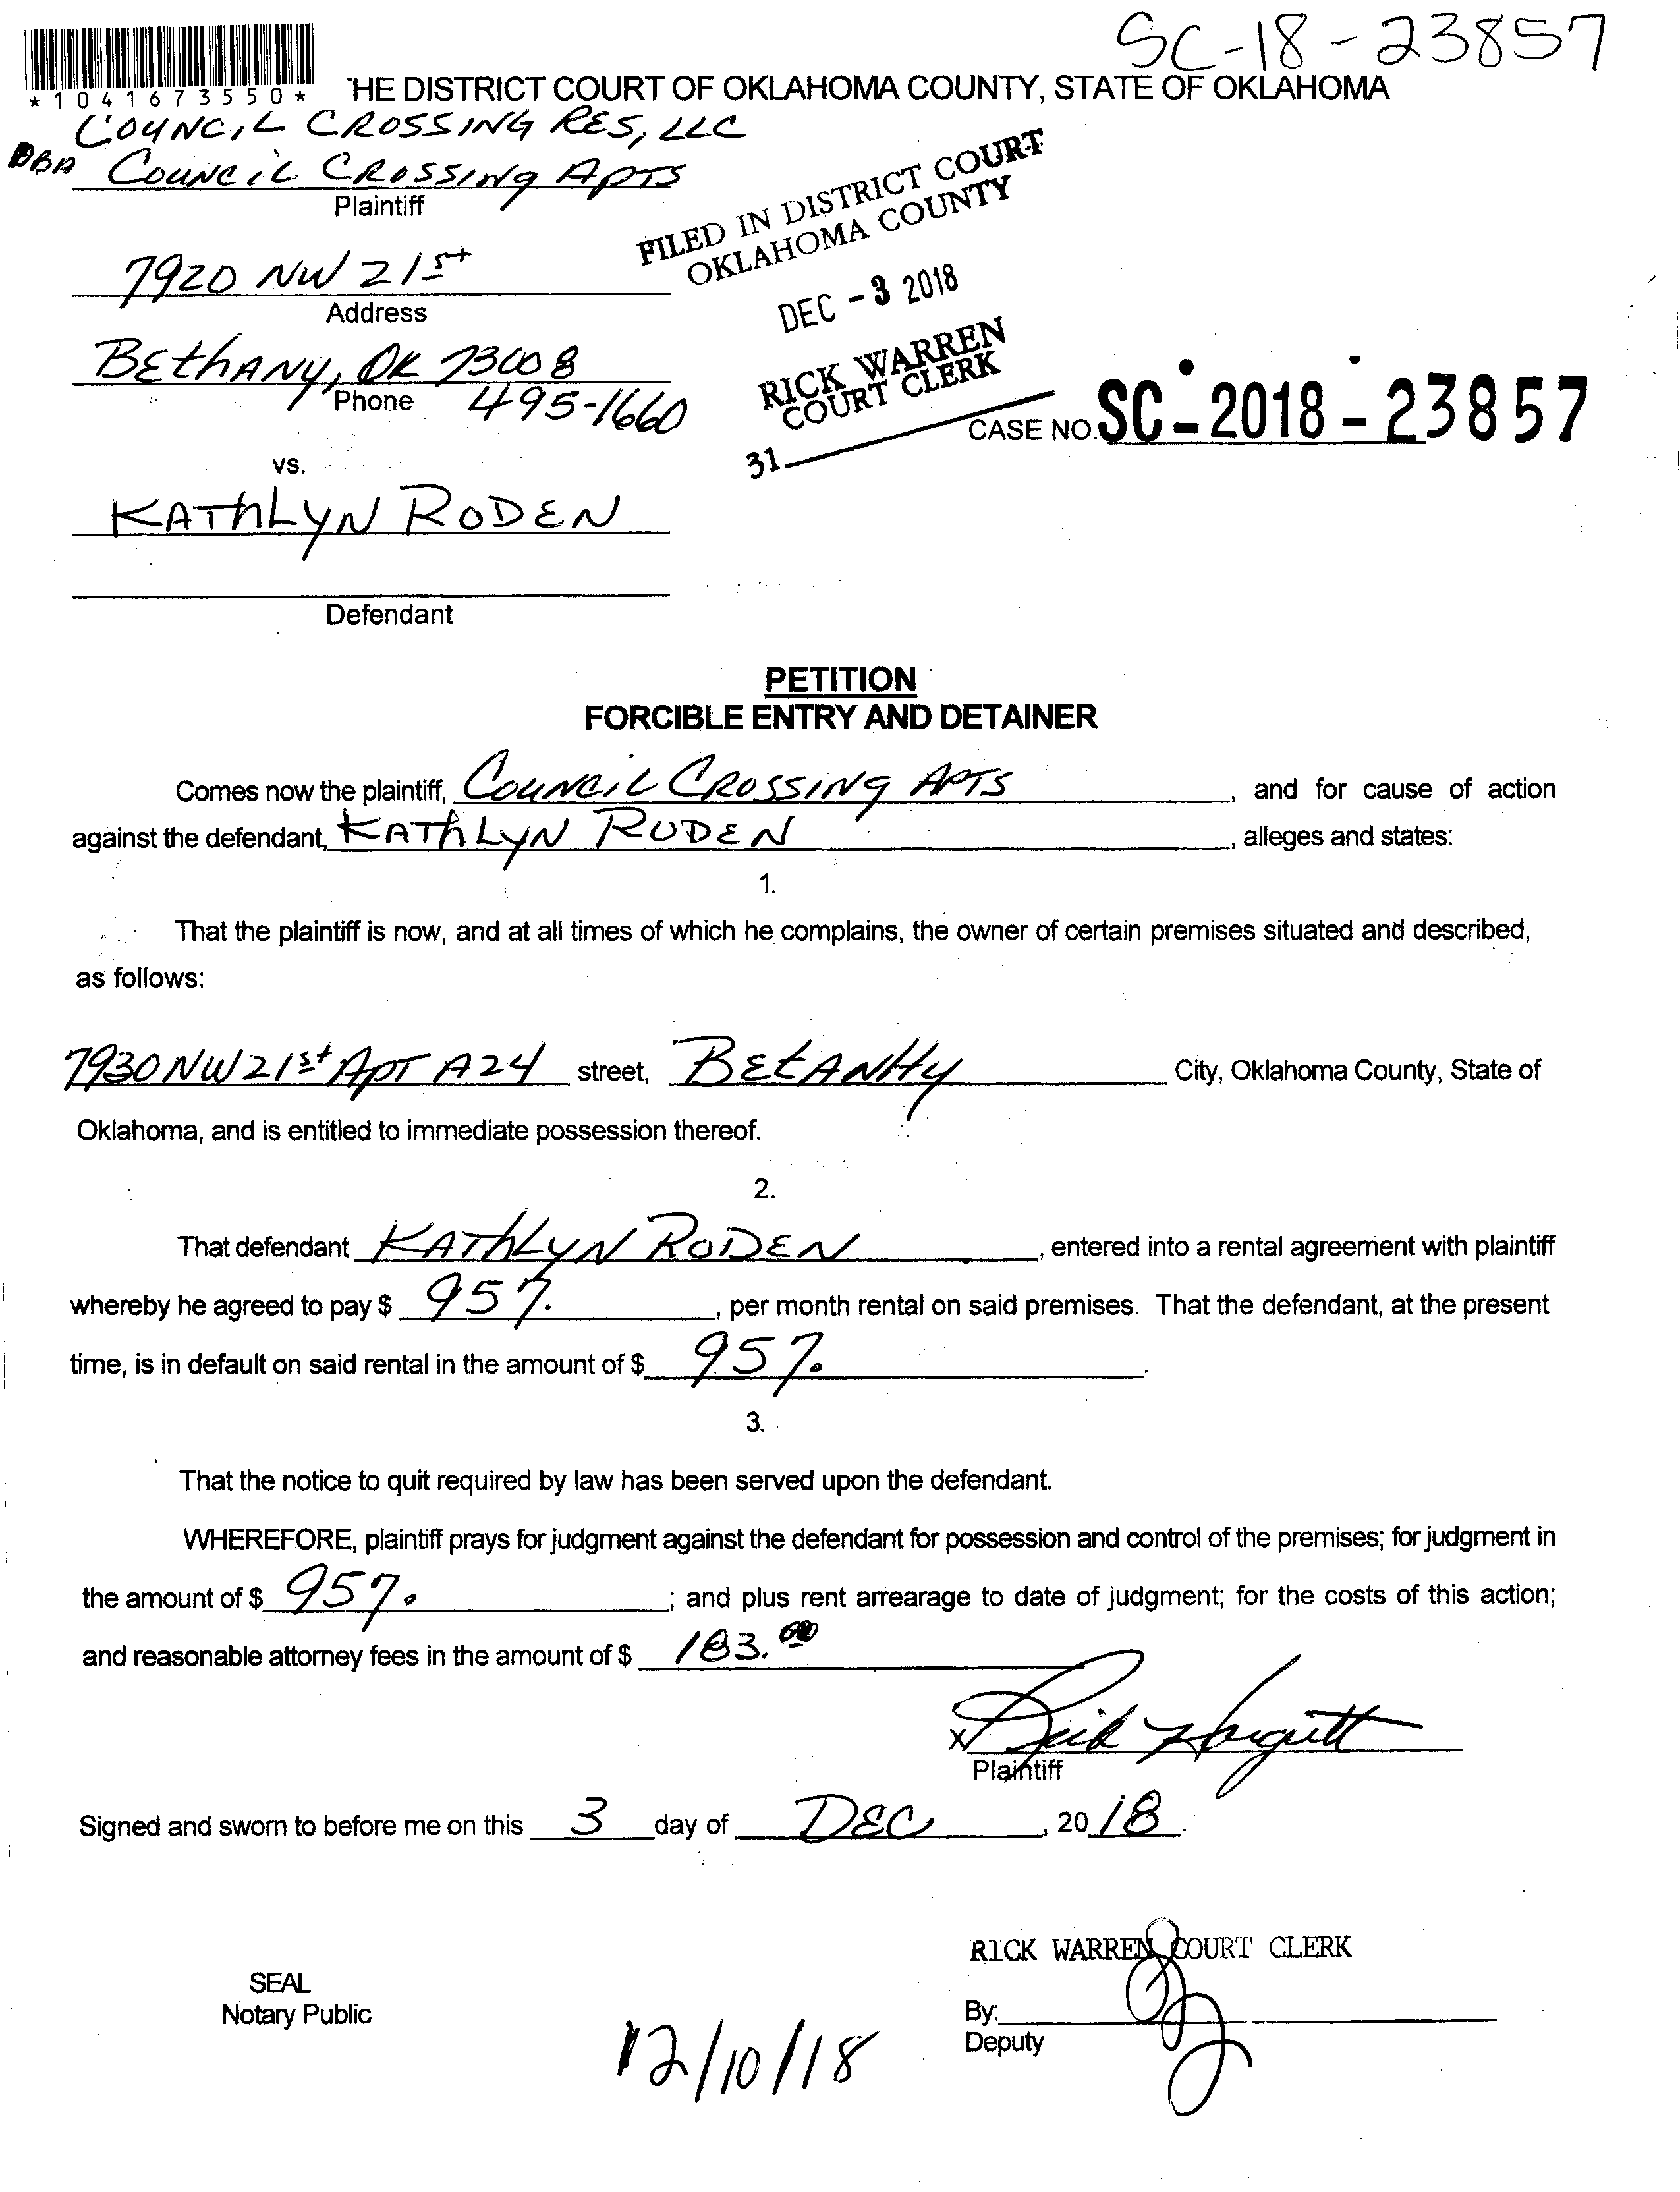 SC-18-23857
*1041673550*
'HE DISTRICT COURT OF OKLAHOMA COUNTY, STATE OF OKLAHOMA
COUNCIL CROSSING RES, LLC
DBA COUNCIL CROSSING APTS
Plaintiff
FILED IN DISTRICT COURT
OKLAHOMA COUNTY
7920 NW 21st
Address
DEC -3 2018
BEthANY, OK 73008
Phone 495-1660
RICK WARREN
COURT CLERK
31
CASE NO. SC-2018-23857
vs.
KAThLYN RODEN
Defendant
PETITION
FORCIBLE ENTRY AND DETAINER
Comes now the plaintiff, COUNCIL CROSSING APTS, and for cause of action
against the defendant, KAThLYN RODEN, alleges and states:
1.
That the plaintiff is now, and at all times of which he complains, the owner of certain premises situated and described,
as follows:
7930 NW 21st APT A24 street, BEtANHy City, Oklahoma County, State of
Oklahoma, and is entitled to immediate possession thereof.
2.
That defendant KAThLYN RODEN, entered into a rental agreement with plaintiff
whereby he agreed to pay $ 957., per month rental on said premises. That the defendant, at the present
time, is in default on said rental in the amount of $ 957.
3.
That the notice to quit required by law has been served upon the defendant.
WHEREFORE, plaintiff prays for judgment against the defendant for possession and control of the premises; for judgment in
the amount of $ 957. ; and plus rent arrearage to date of judgment; for the costs of this action;
and reasonable attorney fees in the amount of $ 183.00
X
Plaintiff
Signed and sworn to before me on this 3 day of DEC, 2018.
RICK WARREN COURT CLERK
SEAL
Notary Public
By:
Deputy
12/10/18